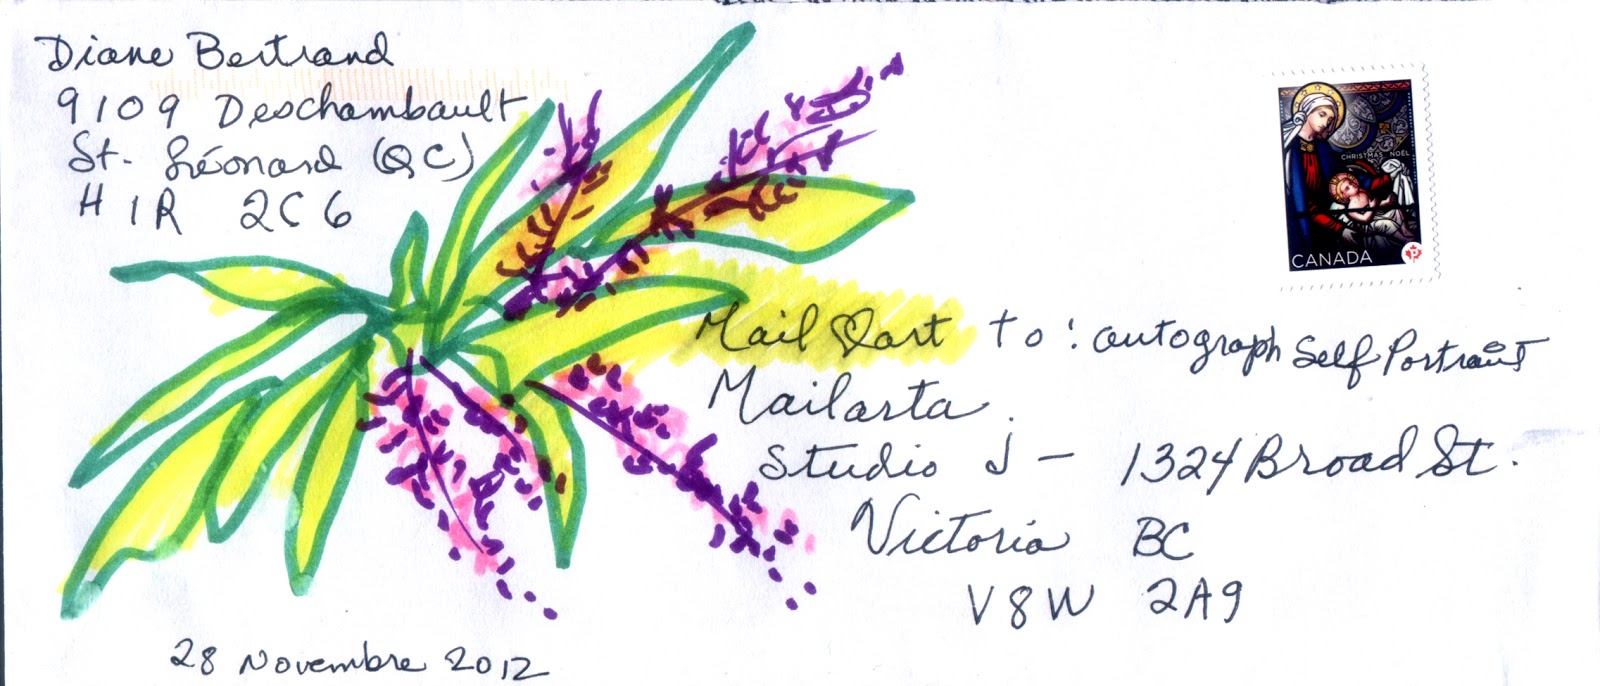 Diane Bertrand
9109 Deschambault
St. Léonard (QC)
H1R 2C6
CHRISTMAS NOËL
CANADA
P
Mail art to: autograph Self Portrait
Mailarta.
Studio J - 1324 Broad St.
Victoria BC
V8W 2A9
28 Novembre 2012